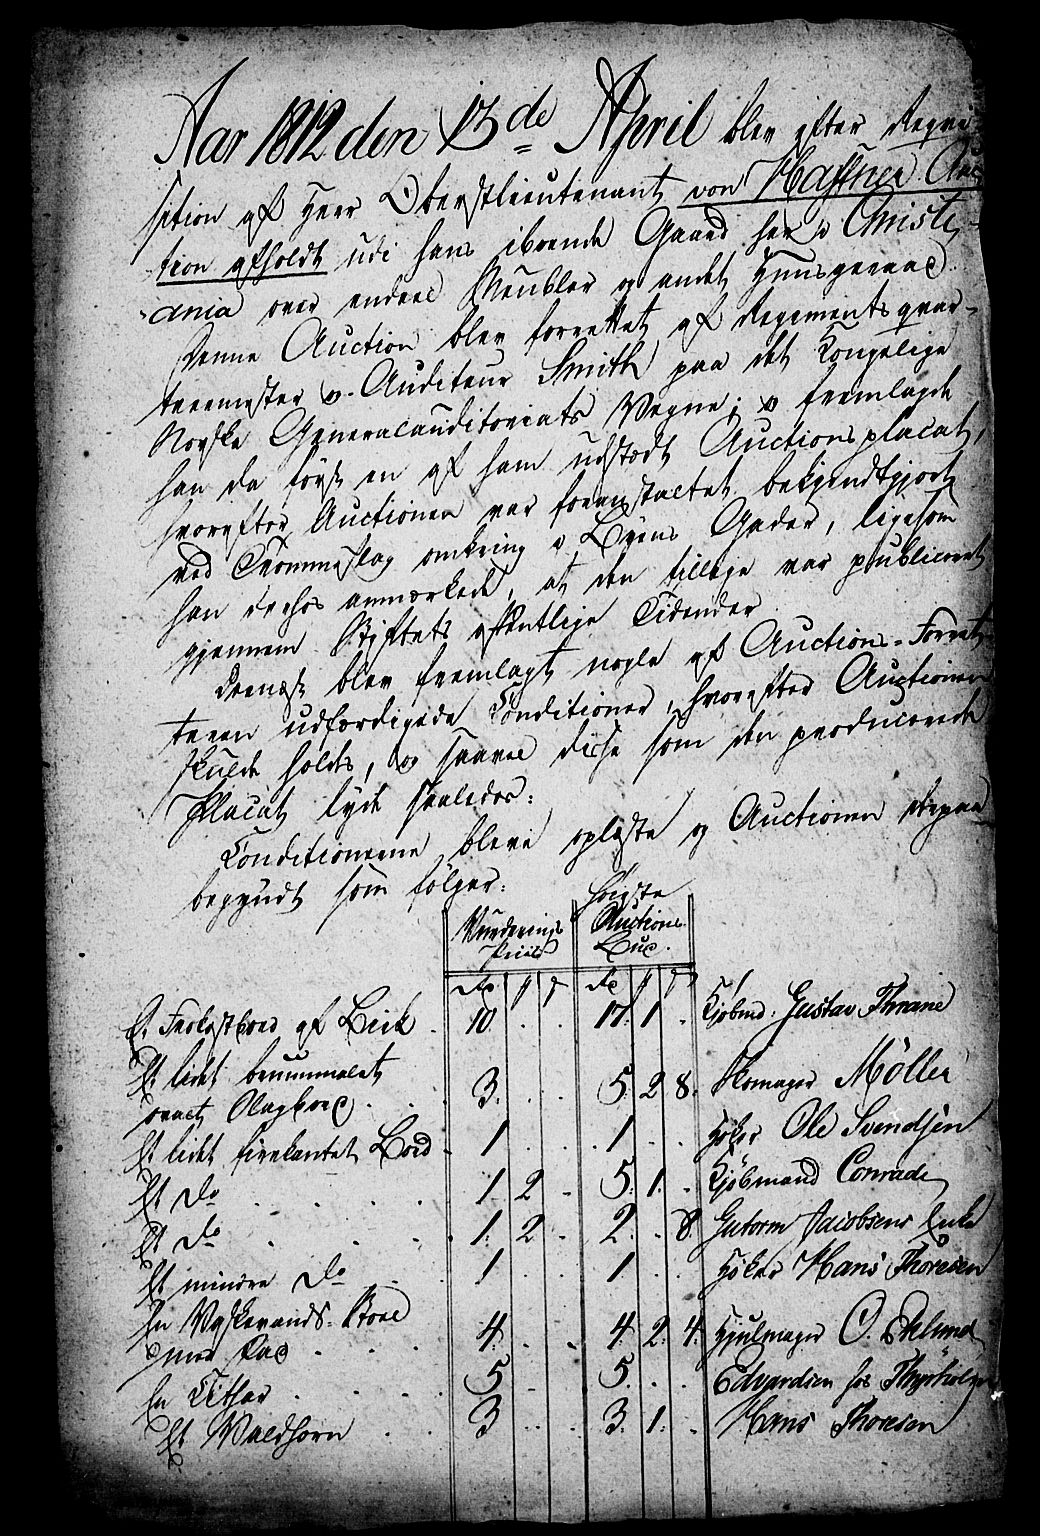 Aar 1812 den 13de April blev efter Reqvi-
sition af Herr Oberstlieutenant von Haffner Auc-
tion afholdt udi hans iboende Gaard her i Christi-
ania over endeel Meubler og andet Huusgeraad.
Denne Auction blev forrettet af Regimentsqvar-
teermester og Auditeur Smith paa det Kongelige
Norske Generalauditoriats Vegne; og fremlagde
han da først en af ham udstædt Auctionsplacat,
hvorefter Auctionen var foranstaltet bekjendtgjort
ved Trommeslag omkring i Byens Gader, ligesom
han derhos anmærkede, at den tillige var publiceret
gjennem Stiftets offentlige Tidender.
Dernæst blev fremlagt nogle af Auctions-Forret-
teren udfærdigede Conditioner, hvorefter Auctionen
skulde holdes, og saavel disse som den producerede
Placat lyde saaledes:
Conditionerne bleve oplæste og Auctionen derpaa
begyndt som følger:
Vurderings Priis
Høieste Auctions Bud.
Rd ß Rd ß
Et Frokostbord af Birk . 10. . . 17. 1. . Kjøbmd. Gustav Thrane
Et lidet bruunmalet
ovalt Slagbord . . . 3. . . 5. 2 8. Skomager Møller
Et lidet firekantet Bord . 1 . . 1. . . Høker Ole Svendsen
Et Do . . . . 1. 2 . 5. 1. . Kjøbmand Conradi
Et Do . . . . 1. 2 . 2. . 8. Gutorm Jacobsens Enke
Et mindre Do . . 1 . . 1 . . Høker Hans Thoresen
En Vaskevands-Bolle
med Fad . . . 4. . . 4. 2. 4. Hjulmager O. Eklund
En Cithar . . . . 5 . . 5. . . Edvardsen hos
Et Valdhorn . . 3 . . 3. 1. . Hans Thoresen